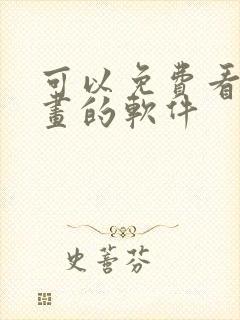 可以免費看
畫的軟件
史蕾芬